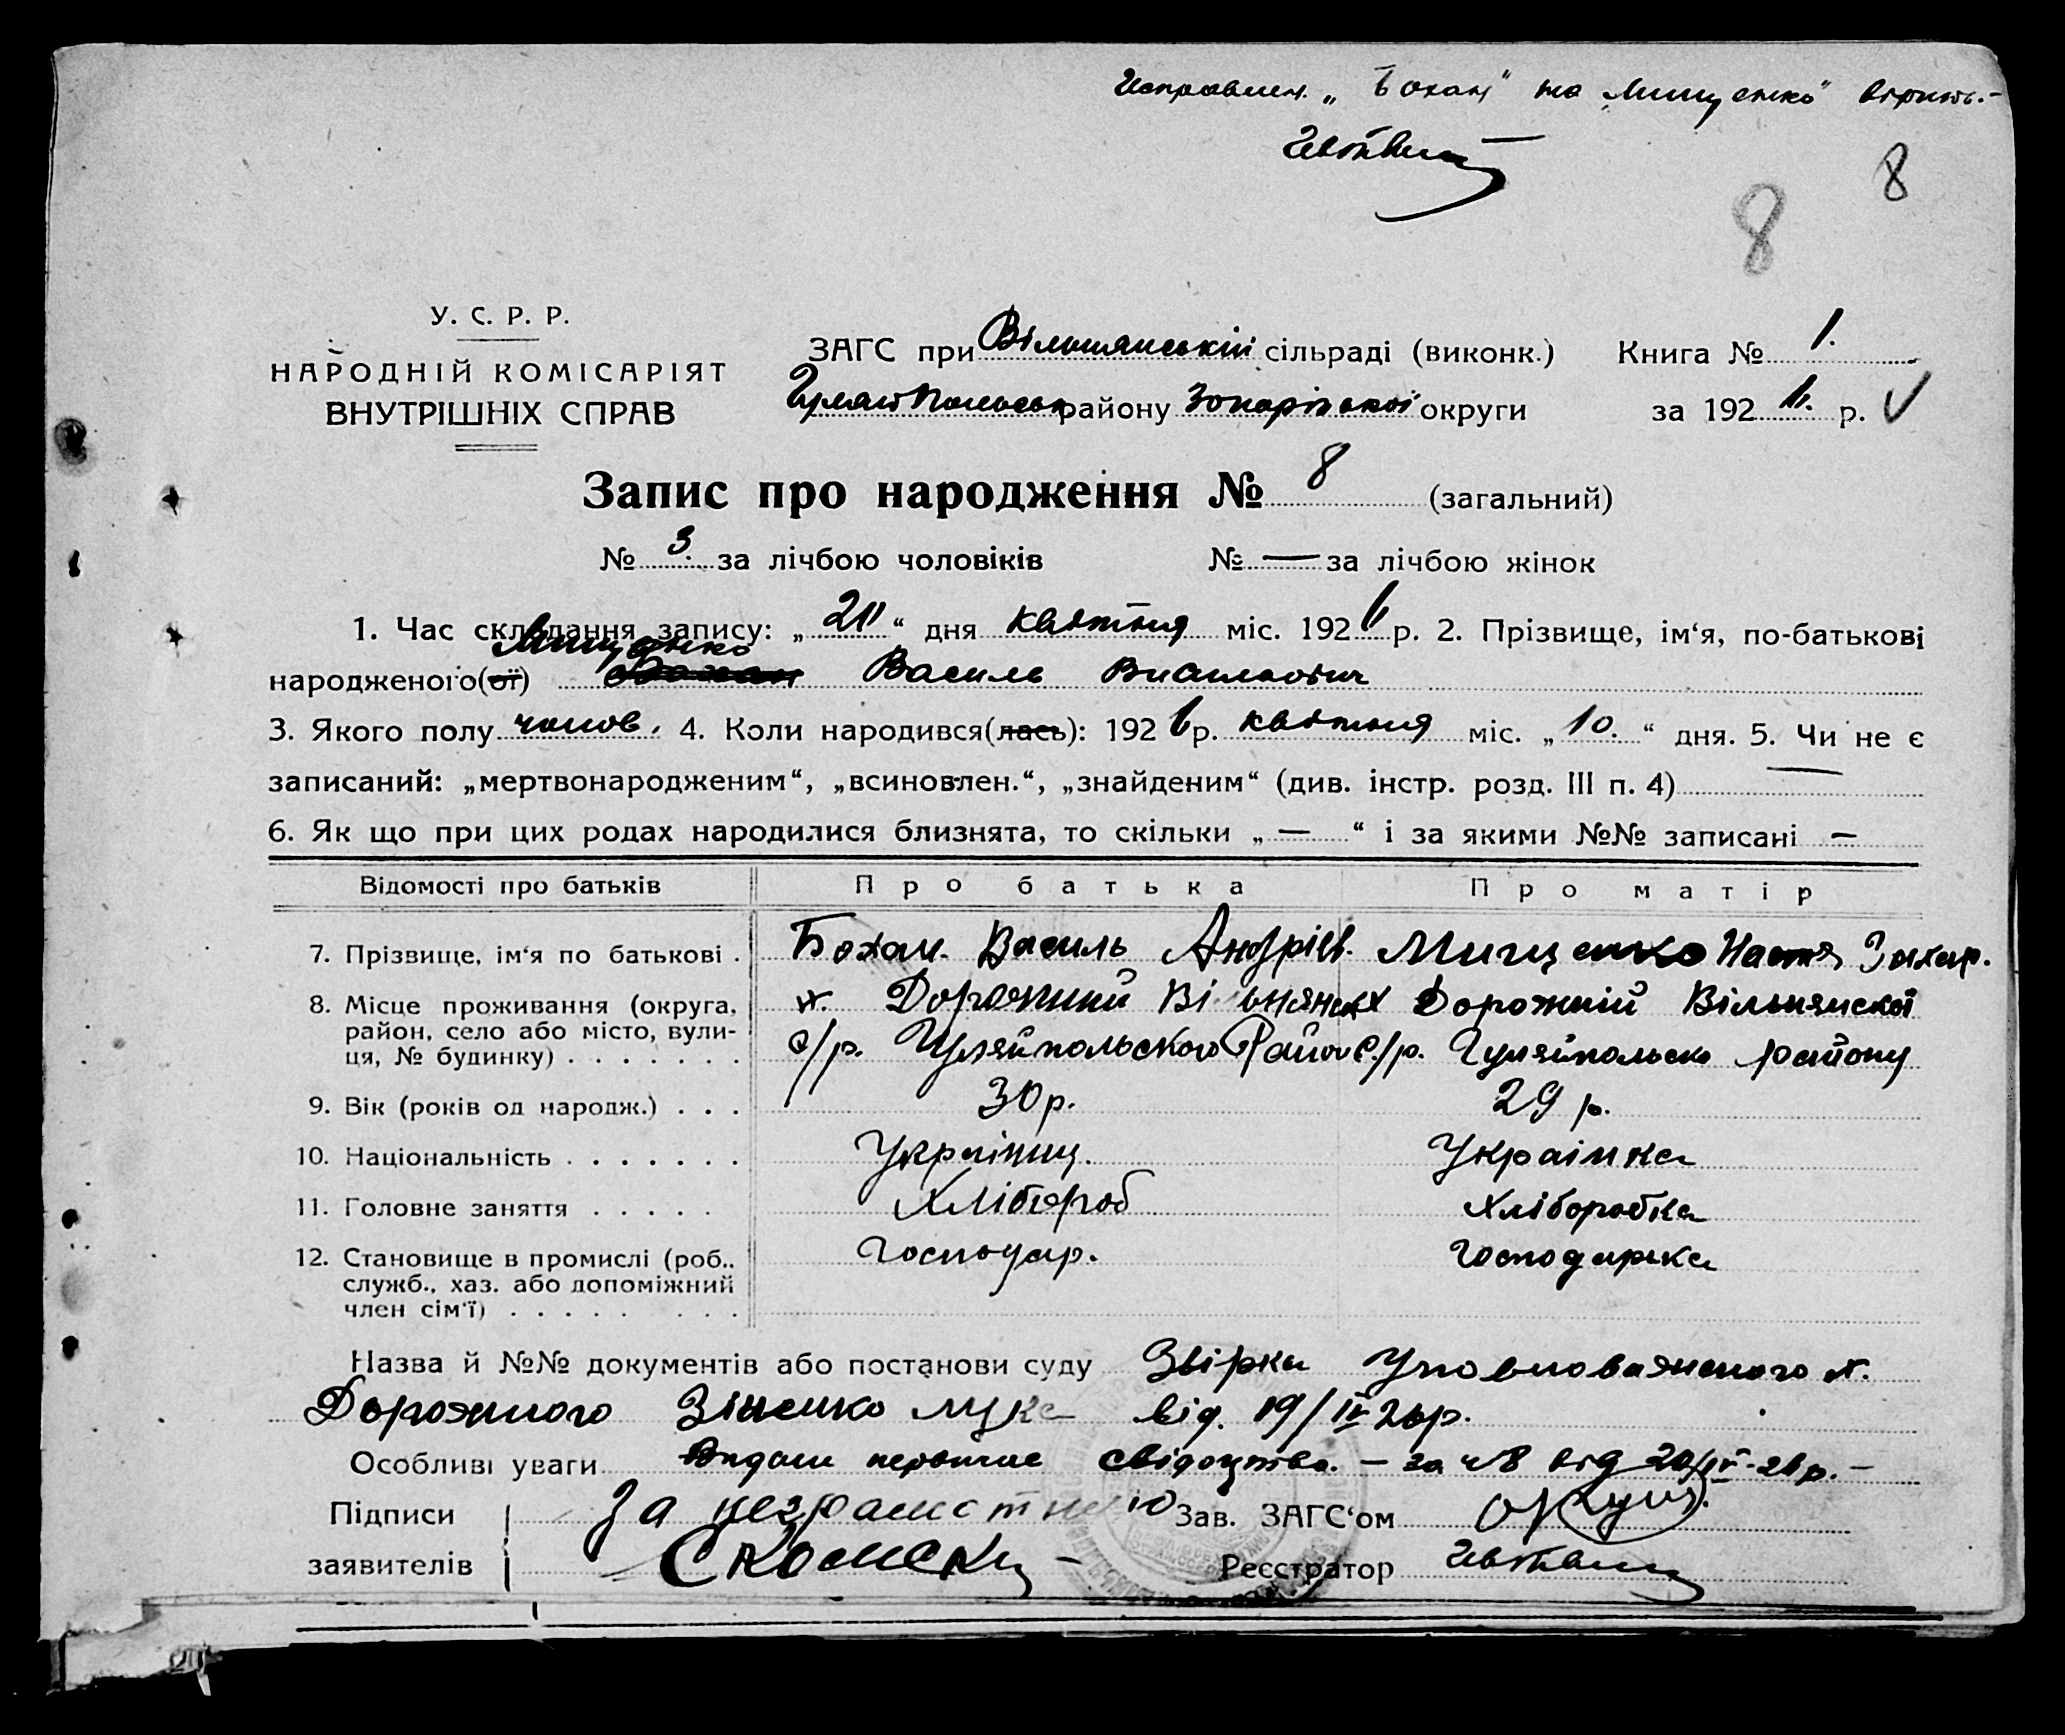 „ Бохан" на Мищенко"
8
8
У. С. Р. Р.
НАРОДНІЙ КОМІСАРІЯТ
ВНУТРІШНІХ СПРАВ
ЗАГС при сільраді (виконк.) Книга № 1.
району округи за 192 6. р.
Запис про народження № 8 (загальний)
№ 3. за лічбою чоловіків № — за лічбою жінок
1. Час складання запису: „ “ дня квітня міс. 192 6 р. 2. Прізвище, ім‘я, по-батькові
Мищенко
народженого(ої) Бохан Василь Василювич
3. Якого полу чолов. 4. Коли народився(лась): 192 6 р. квітня міс. „ 10. “ дня. 5. Чи не є
записаний: „мертвонародженим“, „всиновлен.“, „знайденим“ (див. інстр. розд. III п. 4) —
6. Як що при цих родах народилися близнята, то скільки „ — “ і за якими №№ записані —
Відомості про батьків Про батька Про матір
7. Прізвище, ім‘я по батькові . Бохан. Василь Андріїв. Мищенко Настя Захар.
8. Місце проживання (округа, х. Дорожний Дорожній Вільнянскої
район, село або місто, вули- с/р. Гуляйпольского Район с./р. Гуляйпольско району
ця, № будинку) . . . . . . .
9. Вік (років од народж.) . . . 30 р. 29 р.
10. Національність . . . . . . . Українец. Українка
11. Головне заняття . . . . . Хлібороб Хліборобка
12. Становище в промислі (роб.. Господар. Господарка
служб., хаз. або допоміжний
член сім‘ї) . . . . . . . .
Назва й №№ документів або постанови суду Уповноваженого х.
Дорожного Зіненко Лука від. 19/IV 26р.
Особливі уваги первичне свідоцтва. — за №8 від 20/IV-26р. —
Підписи За неграмотную Зав. ЗАГС‘ом
заявителів Реєстратор